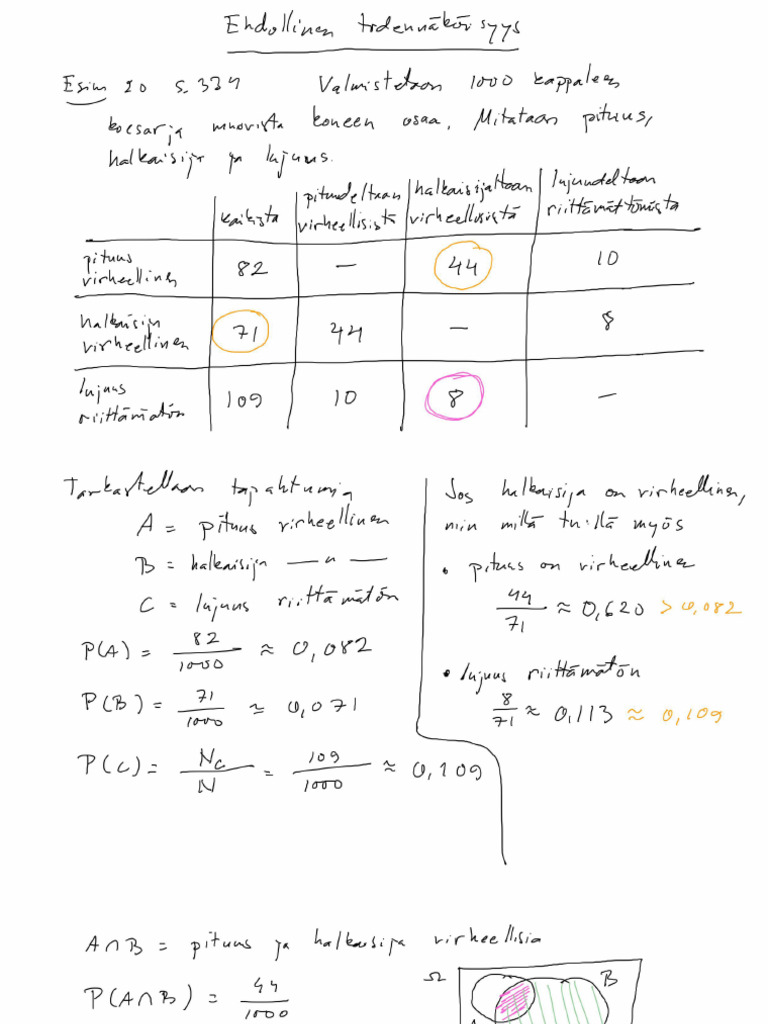 Ehdollinen todennäköisyys
Esim 20 s.334 Valmistetaan 1000 kappaleen
koesarja muovista koneen osaa. Mitataan pituus,
halkaisija ja lujuus.
kaikista pituudeltaan virheellisistä halkaisijaltaan virheellisistä lujuudeltaan riittämättömistä
pituus virheellinen 82 — 44 10
halkaisija virheellinen 71 44 — 8
lujuus riittämätön 109 10 8 —
Tarkastellaan tapahtumia
A = pituus virheellinen
B = halkaisija — " —
C = lujuus riittämätön
P(A) = 82/1000 ≈ 0,082
P(B) = 71/1000 ≈ 0,071
P(C) = N_C/N = 109/1000 ≈ 0,109
Jos halkaisija on virheellinen,
niin millä tn:llä myös
• pituus on virheellinen
44/71 ≈ 0,620 > 0,082
• lujuus riittämätön
8/71 ≈ 0,113 ≈ 0,109
A∩B = pituus ja halkaisija virheellisiä
P(A∩B) = 44/1000
Ω B